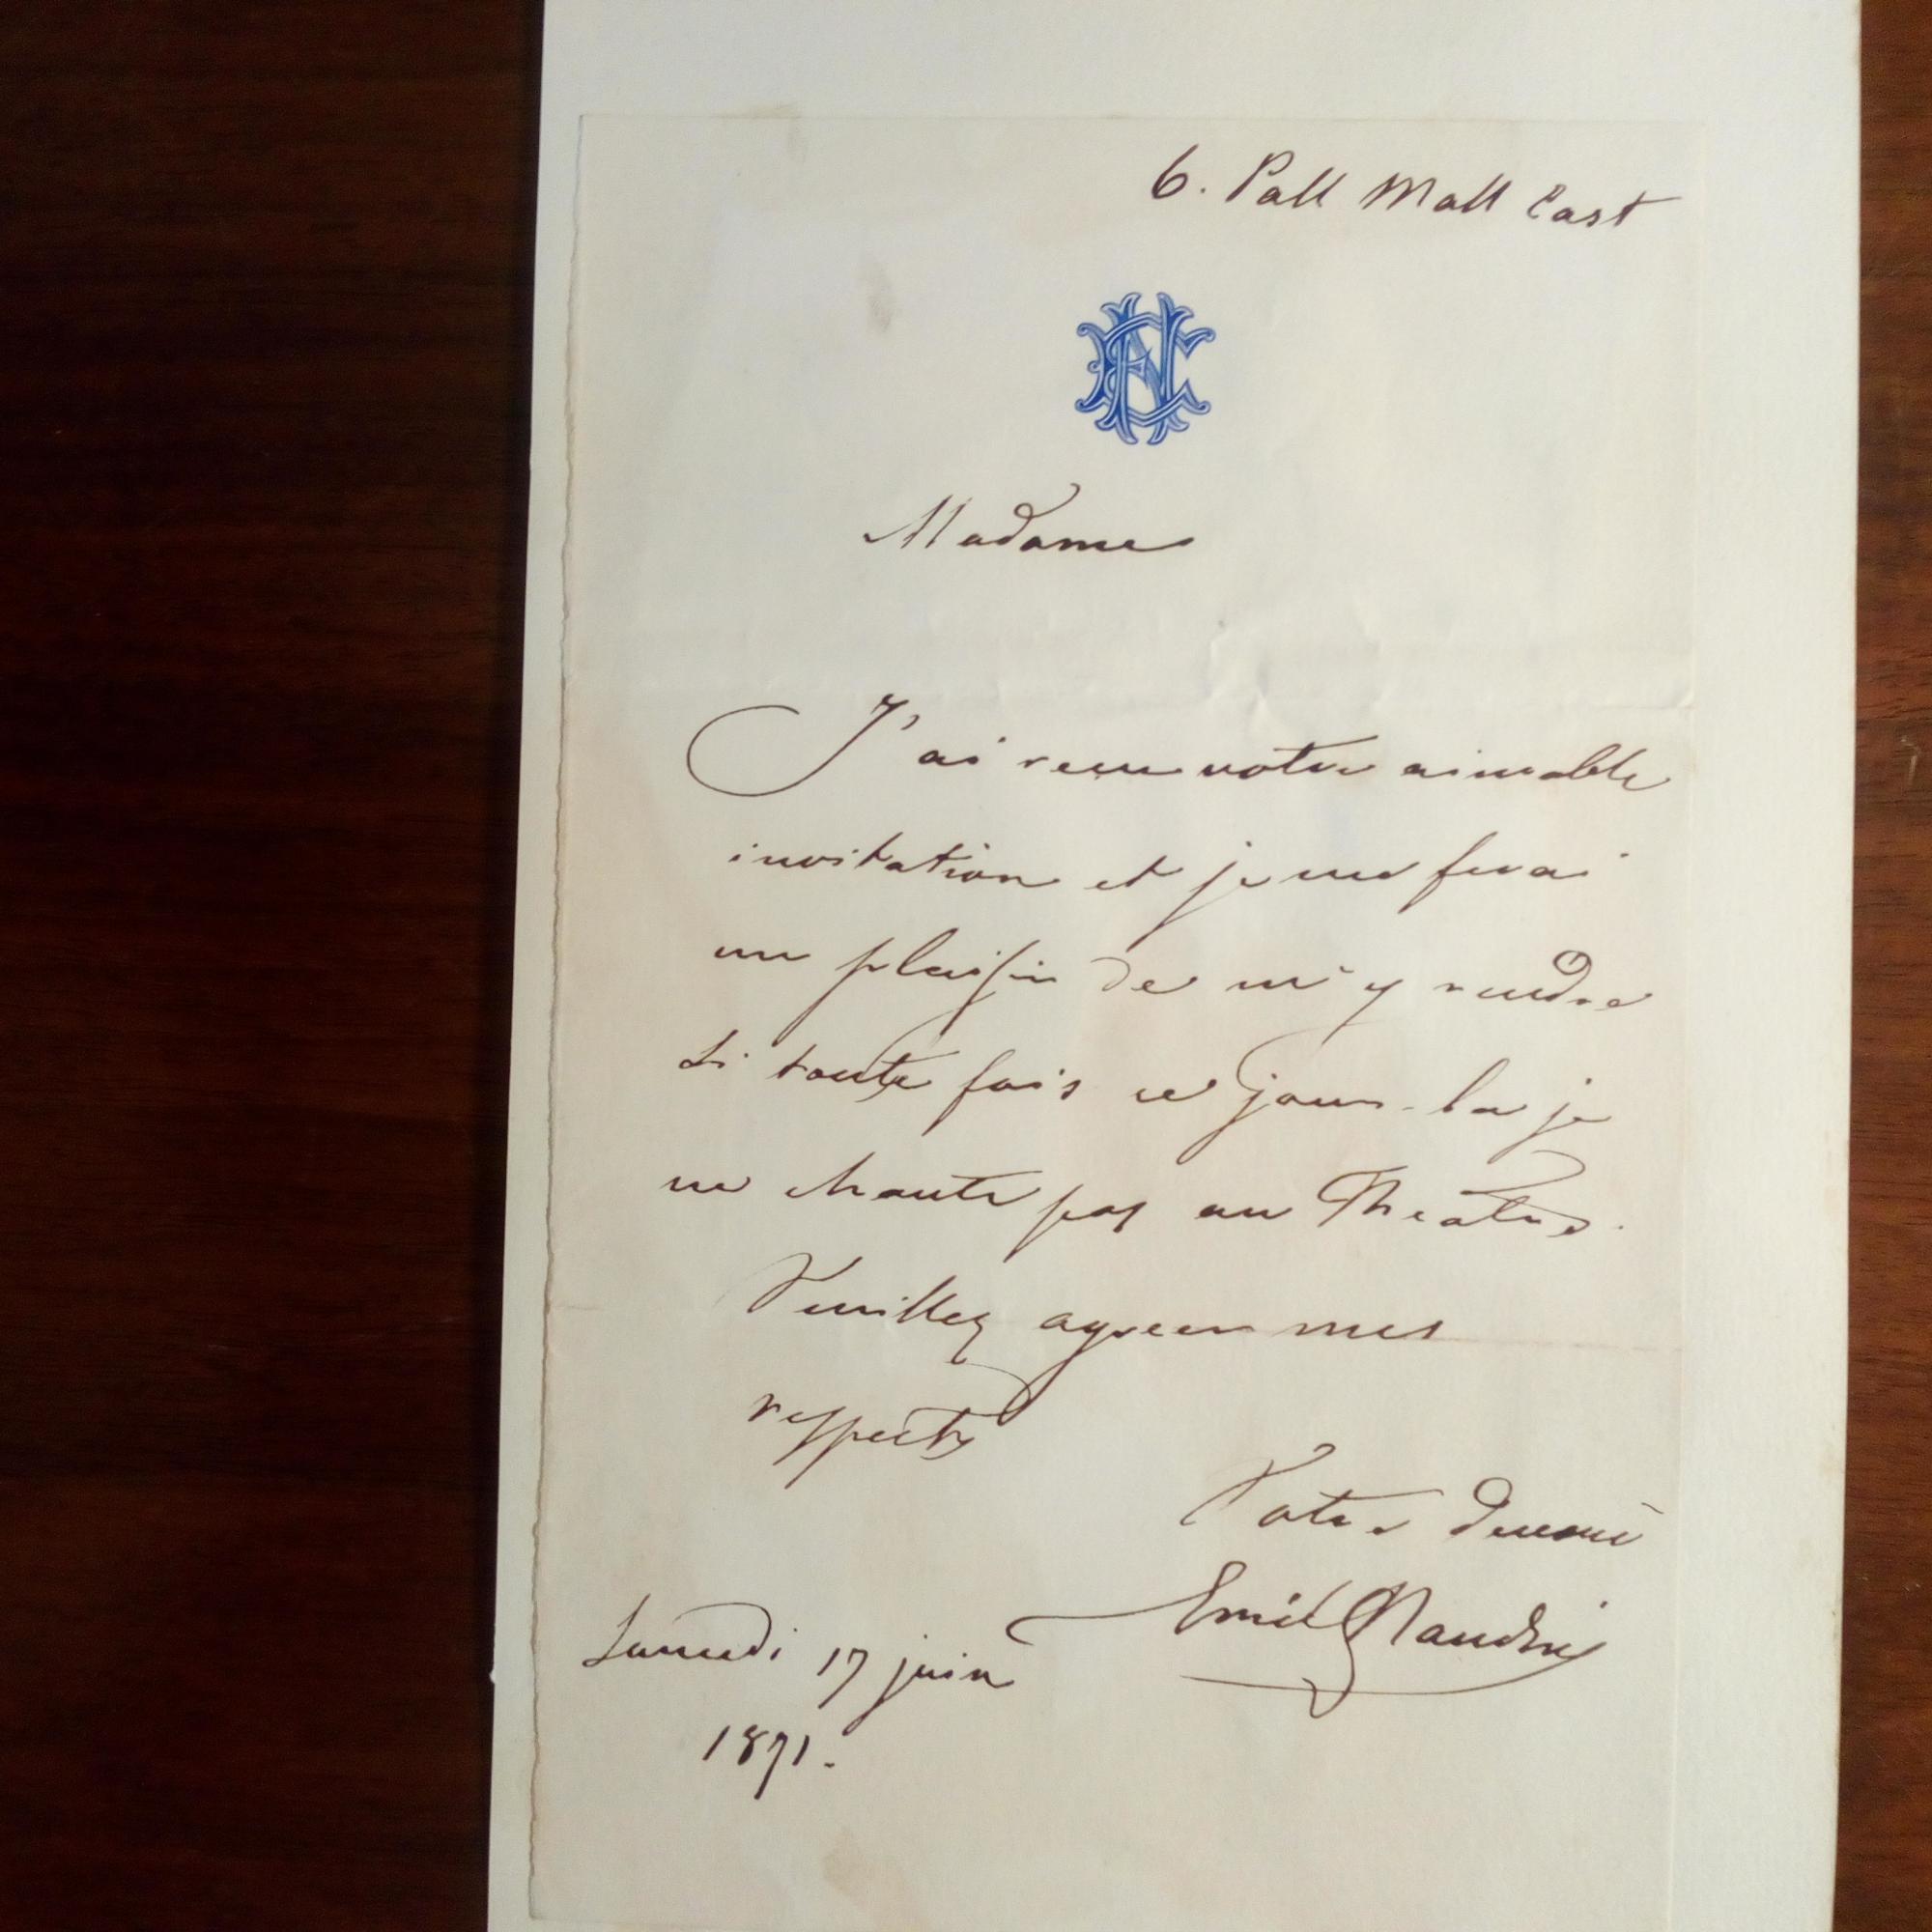 6. Pall Mall East
EN
Madame
J'ai recu votre aimable
invitation et je me ferai
un plaisir de m'y rendre
Si toute fois ce jour-la je
ne chante pas au Theatre.
Veuillez agreer mes
respects
Votre devoué
Emile Naudin
Samedi 17 juin
1871.